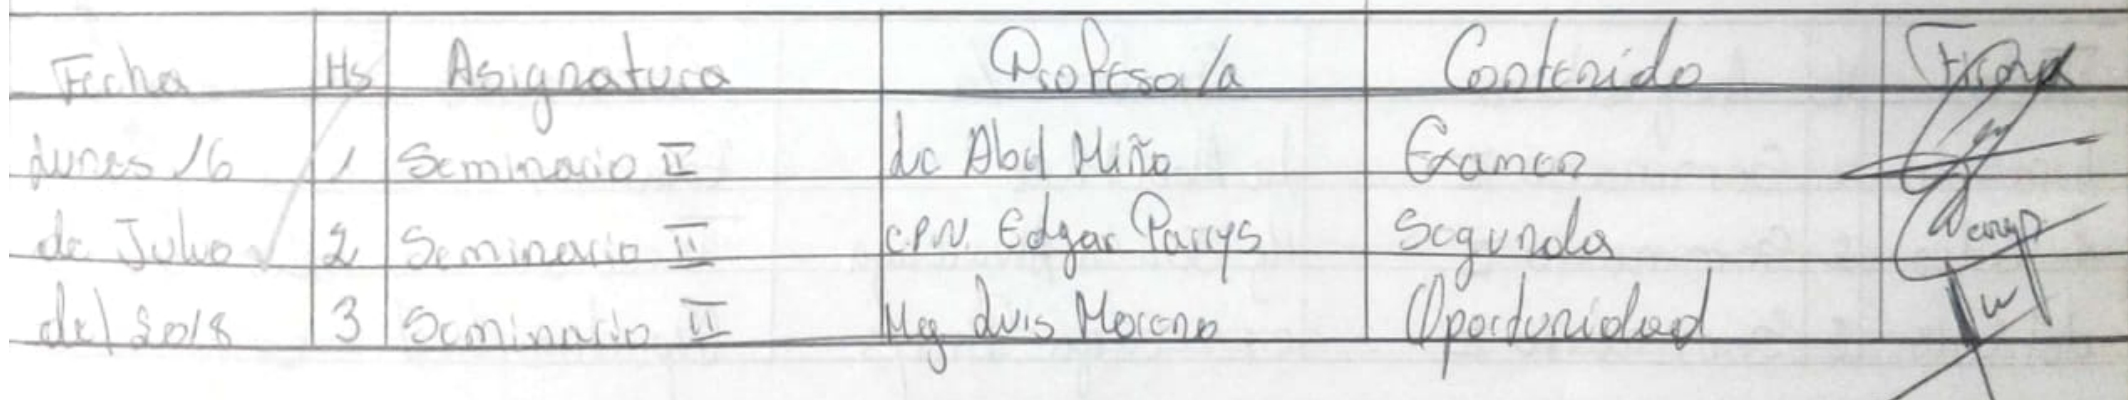 Fecha Hs Asignatura Profesor/a Contenido Firma
Lunes 16 1 Seminario II Lic Abel Miño Examen
de Julio 2 Seminario II C.P.N. Edgar Parrys Segunda
del 2018 3 Seminario II Mg Luis Moreno Oportunidad